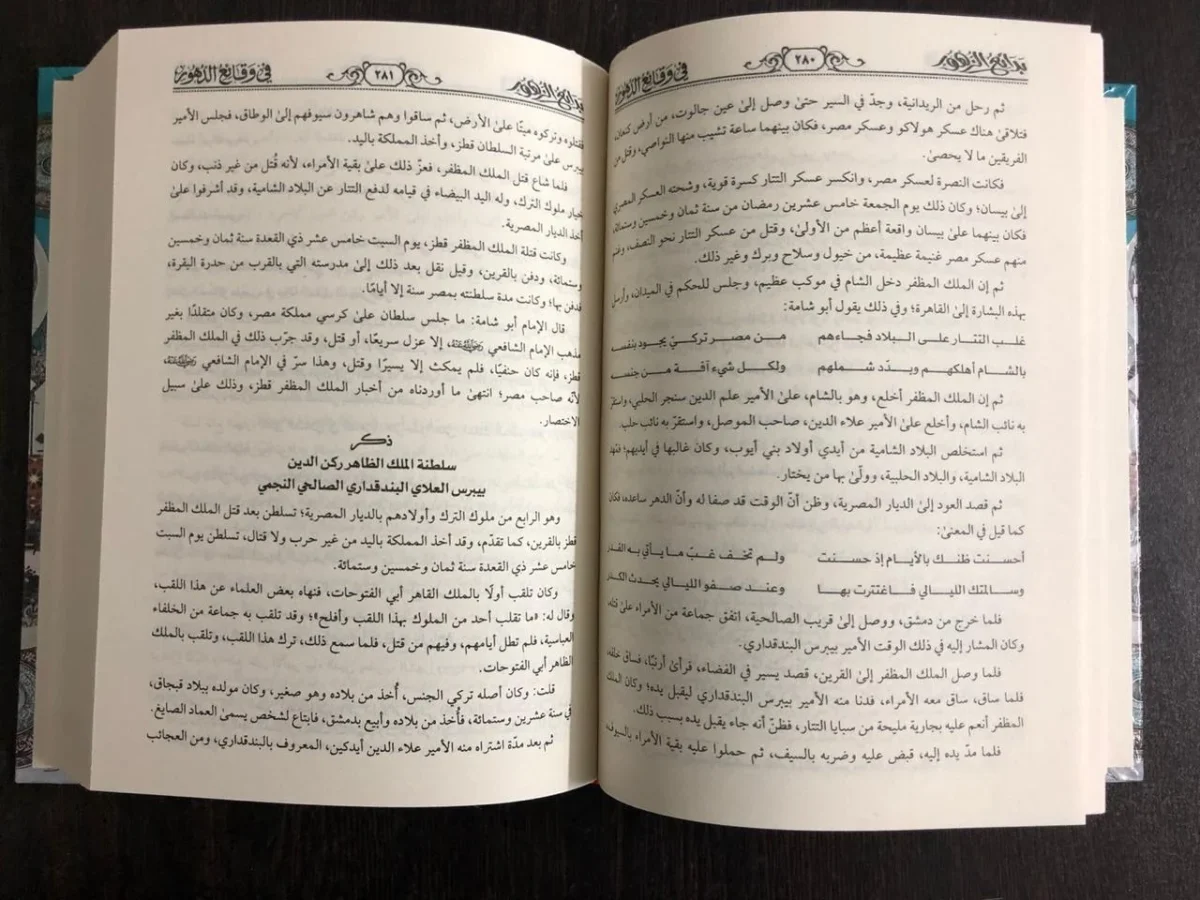 بدائع الزهور
٢٨٠
في وقائع الدهور
ثم رحل من الريدانية، وجدّ في السير حتىٰ وصل إلىٰ عين جالوت، من أرض كنعان
فتلاقىٰ هناك عسكر هولاكو وعسكر مصر، فكان بينهما ساعة تشيب منها النواصي، وقتل من
الفريقين ما لا يحصىٰ.
فكانت النصرة لعسكر مصر، وانكسر عسكر التتار كسرة قوية، وشحته العسكر المصري
إلىٰ بيسان؛ وكان ذلك يوم الجمعة خامس عشرين رمضان من سنة ثمان وخمسين وستمائة،
فكان بينهما علىٰ بيسان واقعة أعظم من الأولىٰ، وقتل من عسكر التتار نحو النصف، وغنم
منهم عسكر مصر غنيمة عظيمة، من خيول وسلاح وبرك وغير ذلك.
ثم إن الملك المظفر دخل الشام في موكب عظيم، وجلس للحكم في الميدان، وأرسل
بهذه البشارة إلىٰ القاهرة؛ وفي ذلك يقول أبو شامة:
غلب التتار على البلاد فجاءهم من مصر تركيّ يجود بنفسه
بالشام أهلكهم وبدّد شملهم ولكل شيء آفة من جنسه
ثم إن الملك المظفر أخلع، وهو بالشام، علىٰ الأمير علم الدين سنجر الحلبي، واستقرّ
به نائب الشام، وأخلع على الأمير علاء الدين، صاحب الموصل، واستقرّ به نائب حلب.
ثم استخلص البلاد الشامية من أيدي أولاد بني أيوب، وكان غالبها في أيديهم؛ فمهد
البلاد الشامية، والبلاد الحلبية، وولّىٰ بها من يختار.
ثم قصد العود إلىٰ الديار المصرية، وظن أنّ الوقت قد صفا له وأنّ الدهر ساعده، فكان
كما قيل في المعنىٰ:
أحسنت ظنك بالأيام إذ حسنت ولم تخف غبّ ما يأتي به القدر
وسالمتك الليالي فاغتررت بها وعند صفو الليالي يحدث الكدر
فلما خرج من دمشق، ووصل إلىٰ قريب الصالحية، اتفق جماعة من الأمراء علىٰ قتله،
وكان المشار إليه في ذلك الوقت الأمير بيبرس البندقداري.
فلما وصل الملك المظفر إلىٰ القرين، قصد يسير في الفضاء، فرأىٰ أرنبًا، فساق خلفه،
فلما ساق، ساق معه الأمراء، فدنا منه الأمير بيبرس البندقداري ليقبل يده؛ وكان الملك
المظفر أنعم عليه بجارية مليحة من سبايا التتار، فظنّ أنه جاء يقبل يده بسبب ذلك.
فلما مدّ يده إليه، قبض عليه وضربه بالسيف، ثم حملوا عليه بقية الأمراء بالسيوف
بدائع الزهور
٢٨١
في وقائع الدهور
فقتلوه وتركوه ميتًا علىٰ الأرض، ثم ساقوا وهم شاهرون سيوفهم إلىٰ الوطاق، فجلس الأمير
بيبرس علىٰ مرتبة السلطان قطز، وأخذ المملكة باليد.
فلما شاع قتل الملك المظفر، فعزّ ذلك علىٰ بقية الأمراء، لأنه قُتل من غير ذنب، وكان
خيار ملوك الترك، وله اليد البيضاء في قيامه لدفع التتار عن البلاد الشامية، وقد أشرفوا علىٰ
أخذ الديار المصرية.
وكانت قتلة الملك المظفر قطز، يوم السبت خامس عشر ذي القعدة سنة ثمان وخمسين
وستمائة، ودفن بالقرين، وقيل نقل بعد ذلك إلىٰ مدرسته التي بالقرب من حدرة البقرة،
فدفن بها؛ وكانت مدة سلطنته بمصر سنة إلا أيامًا.
قال الإمام أبو شامة: ما جلس سلطان علىٰ كرسي مملكة مصر، وكان متقلدًا بغير
مذهب الإمام الشافعي رضي الله عنه، إلا عزل سريعًا، أو قتل، وقد جرّب ذلك في الملك المظفر
قطز، فإنه كان حنفيًا، فلم يمكث إلا يسيرًا وقتل، وهذا سرّ في الإمام الشافعي رضي الله عنه،
لأنه صاحب مصر؛ انتهىٰ ما أوردناه من أخبار الملك المظفر قطز، وذلك علىٰ سبيل
الاختصار.
ذكر
سلطنة الملك الظاهر ركن الدين
بيبرس العلاي البندقداري الصالحي النجمي
وهو الرابع من ملوك الترك وأولادهم بالديار المصرية؛ تسلطن بعد قتل الملك المظفر
قطز بالقرين، كما تقدّم، وقد أخذ المملكة باليد من غير حرب ولا قتال، تسلطن يوم السبت
خامس عشر ذي القعدة سنة ثمان وخمسين وستمائة.
وكان تلقب أولًا بالملك القاهر أبي الفتوحات، فنهاه بعض العلماء عن هذا اللقب،
وقال له: «ما تقلب أحد من الملوك بهذا اللقب وأفلح»؛ وقد تلقب به جماعة من الخلفاء
العباسية، فلم تطل أيامهم، وفيهم من قتل، فلما سمع ذلك، ترك هذا اللقب، وتلقب بالملك
الظاهر أبي الفتوحات.
قلت: وكان أصله تركي الجنس، أُخذ من بلاده وهو صغير، وكان مولده ببلاد قبجاق،
في سنة عشرين وستمائة، فأُخذ من بلاده وأبيع بدمشق، فابتاع لشخص يسمىٰ العماد الصايغ.
ثم بعد مدّة اشتراه منه الأمير علاء الدين أيدكين، المعروف بالبندقداري، ومن العجائب